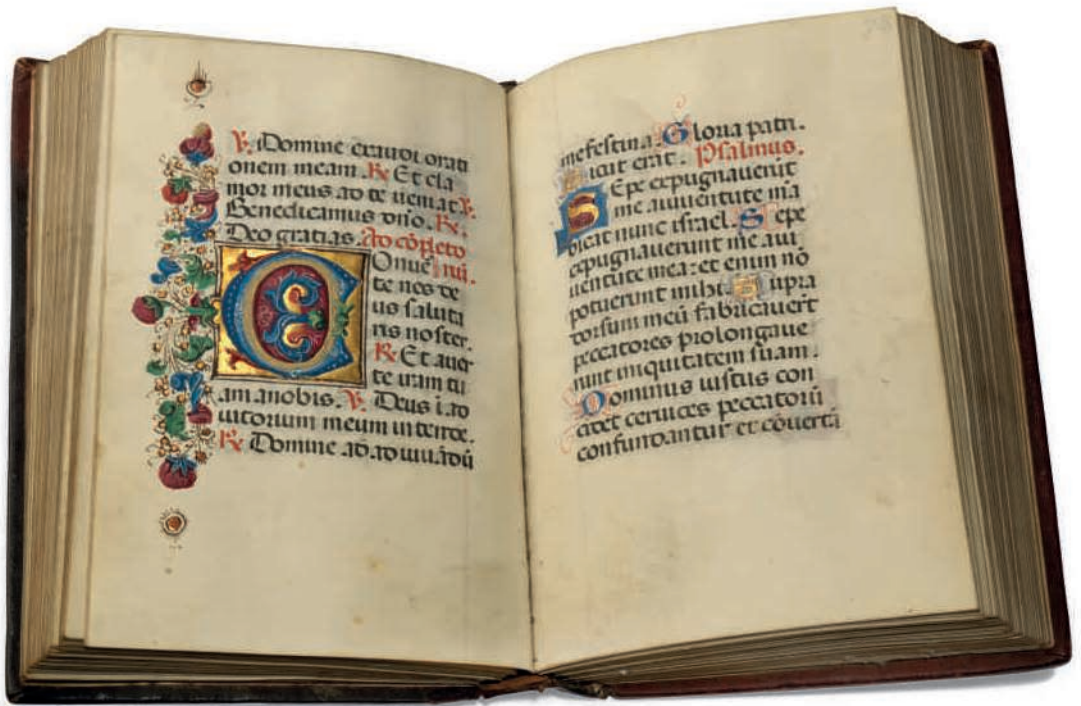 ℣. Domine exaudi orati
onem meam. ℟ Et cla
mor meus ad te veniat. ℣.
Benedicamus dn̄o. ℟.
Deo gratias. Ad cōpleto
Onuer riū.
te nos de
us saluta
ris noster.
℟ Et auer
te iram tu
am anobis. ℣. Deus i ad
iutorium meum intende.
℟ Domine ad adiuuādū
me festina. Gloria patri.
Sicut erat. Psalmus.
SEpe expugnauerūt
me aiuuentute m̄a
dicat nunc israel. Sepe
expugnauerunt me aiu
uentute mea: et enim nō
potuerunt mihi. Supra
dorsum meū fabricauerūt
peccatores prolongaue
runt iniquitatem suam.
Dominus iustus con
cidet ceruices peccatorū
confundantur et cōuertā